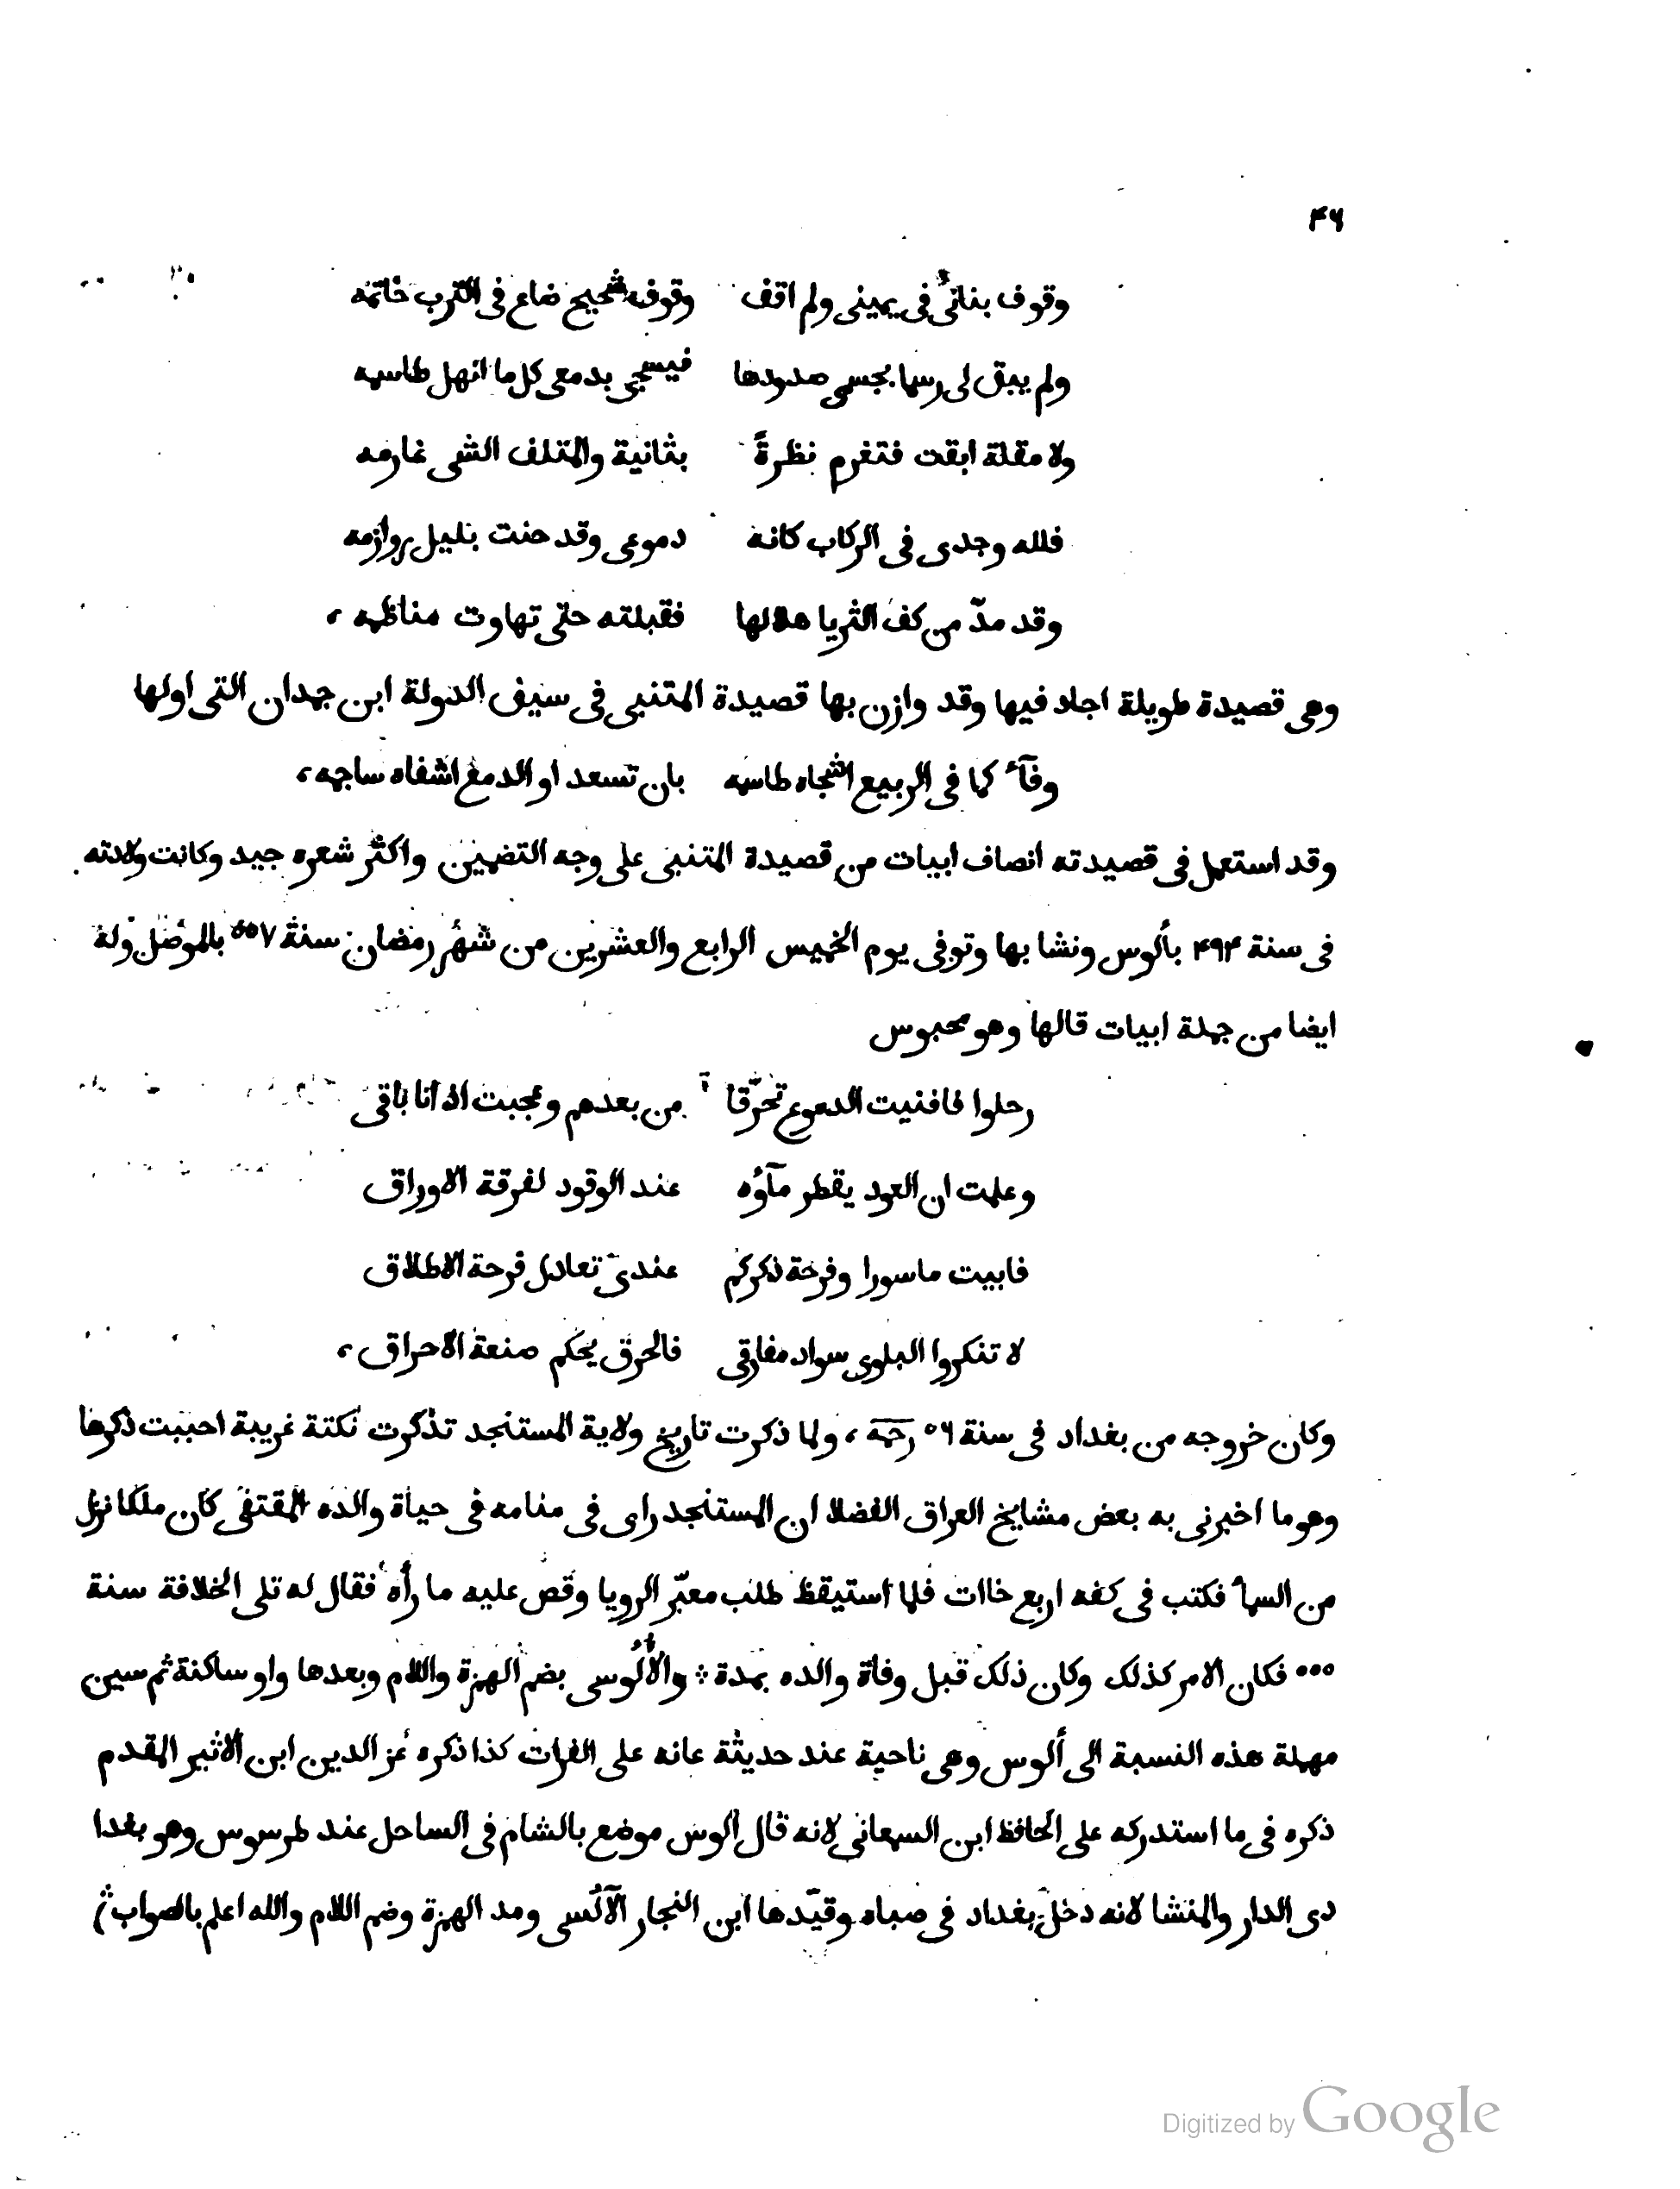 ۴۶
وقوف بنانى فى يمينى ولم اقف وقوف شحيح ضاع فى الترب خاتمه
ولم يبق لى رسما بجسمى صدودها فيسجى بدمعى كل ما انهل طاسمه
ولا مقلة ابقت فتغرم نظرةً بثانية والمتلف الشى غارمه
فلله وجدى فى الركاب كانه دموعى وقد حنت بليل روازمه
وقد مدّ من كف الثريا هلالها فقبلته حتى تهاوت مناظمه،
وهى قصيدة طويلة اجاد فيها وقد وازن بها قصيدة المتنبى فى سيف الدولة ابن حمدان التى اولها
وفآء كما فى الربيع اشجاه طاسمه بان تسعد او الدمع اشفاه ساجمه،
وقد استعمل فى قصيدته انصاف ابيات من قصيدة المتنبى على وجه التضمين واكثر شعره جيد وكانت ولادته
فى سنة ۴۹۴ بألوس ونشا بها وتوفى يوم الخميس الرابع والعشرين من شهر رمضان سنة ۵۵۷ بالموصل وله
ايضا من جملة ابيات قالها وهو محبوس
رحلوا فافنيت الدموع تحرّقا من بعدهم وعجبت اذ انا باقى
وعلمت ان العود يقطر مآؤه عند الوقود لفرقة الاوراق
فابيت ماسورا وفرحة ذكركم عندى تعادل فرحة الاطلاق
لا تنكروا البلوى سواد مفارقى فالحرق يحكم صنعة الاحراق،
وكان خروجه من بغداد فى سنة ۵۶ رحمه، ولما ذكرت تاريخ ولاية المستنجد تذكرت نكتة غريبة احببت ذكرها
وهو ما اخبرنى به بعض مشايخ العراق الفضلا ان المستنجد راى فى منامه فى حياة والده المقتفى كان ملكا نزل
من السمأ فكتب فى كفه اربع خاات فلما استيقظ طلب معبّر الرويا وقص عليه ما رأه فقال له تلى الخلافة سنة
۵۵۵ فكان الامر كذلك وكان ذلك قبل وفاة والده بمدة والأُلُوسى بضم الهمزة واللام وبعدها واو ساكنة ثم سين
مهملة هذه النسبة الى ألوس وهى ناحية عند حديثة عانه على الفرات كذا ذكره عز الدين ابن الاثير المقدم
ذكره فى ما استدركه على الحافظ ابن السمعانى لانه قال الوس موضع بالشام فى الساحل عند طرسوس وهو بغدا
دى الدار والمنشا لانه دخل بغداد فى صباه وقيّدها ابن النجار الآلُسى ومد الهمزة وضم اللام والله اعلم بالصواب
Digitized by Google